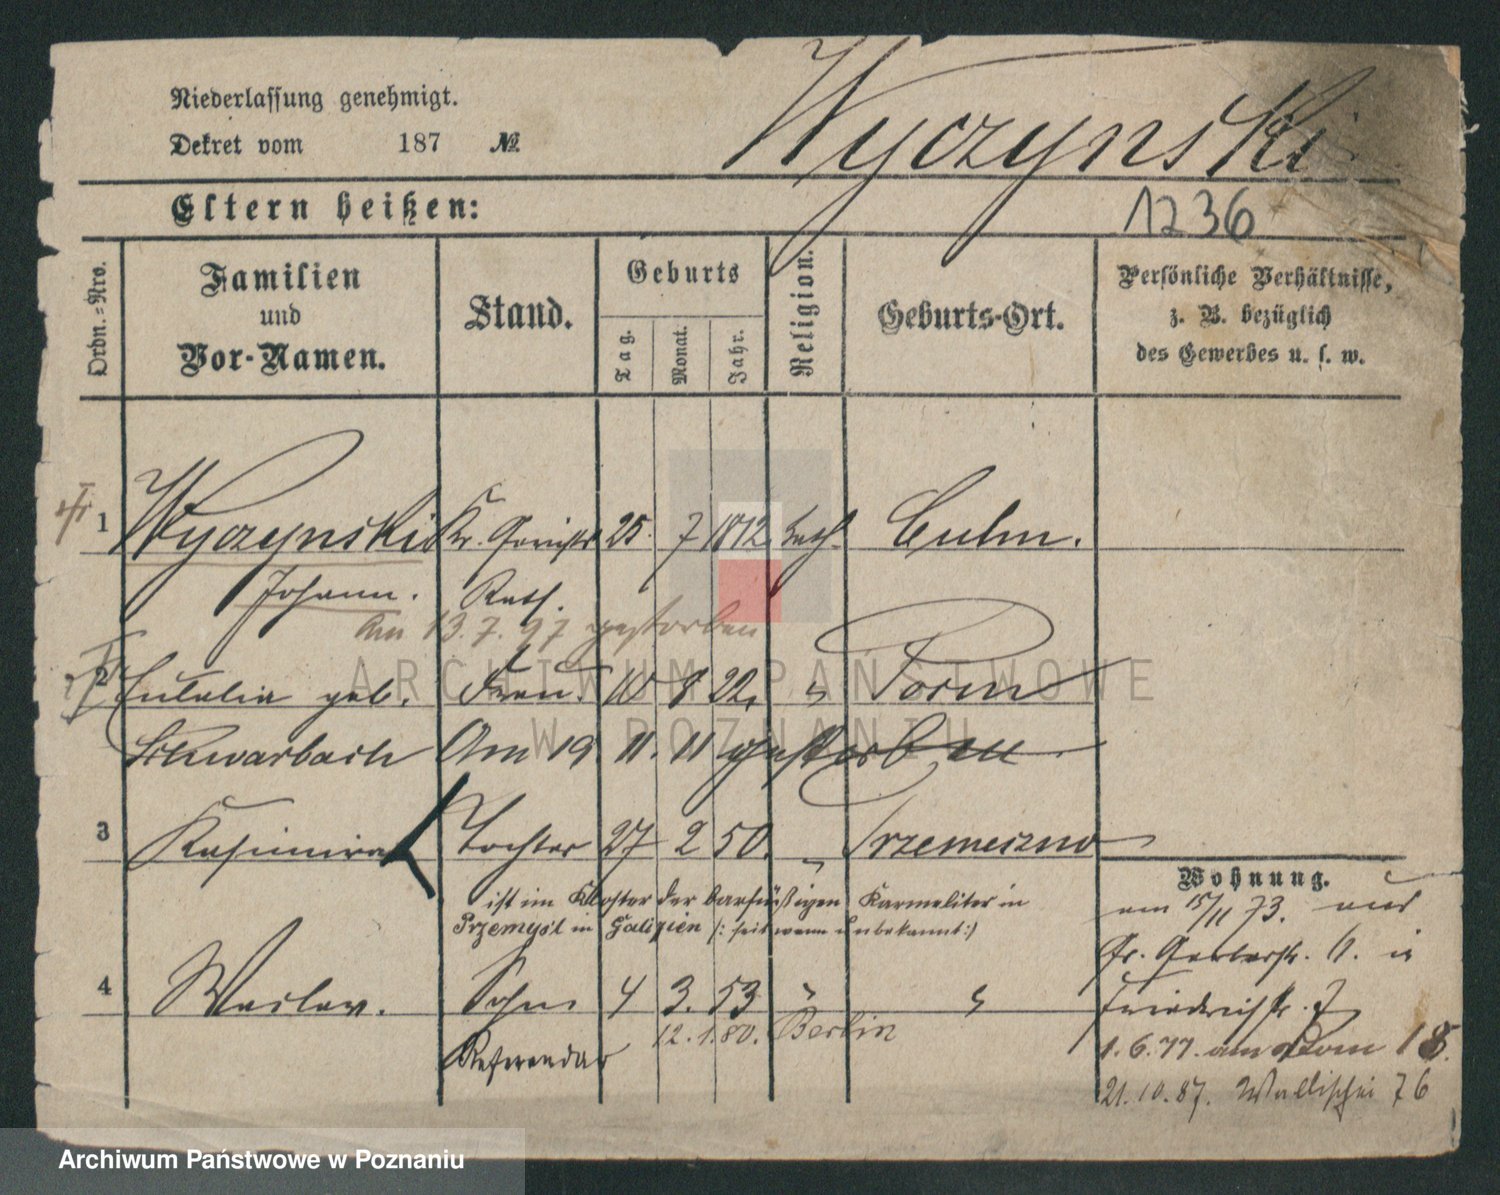 Niederlassung genehmigt.
Dekret vom 187 №
Wyczynski
Eltern heißen:
1236
Ordn.=Nro.
Familien und Vor-Namen.
Stand.
Geburts
Tag.
Monat.
Jahr.
Religion.
Geburts-Ort.
Persönliche Verhältnisse,
z. B. bezüglich
des Gewerbes u. s. w.
1 Wyczynski Kr. Gerichts 25. 7 1812 kath. Culm.
Johann. Rath.
am 13.7.97 gestorben
2 Eulalia geb. Frau. 10 8 22. " Posen
Schwarbach Am 19 11. 11 gestorben
3 Kasimira Tochter 27 2 50. " Trzemeszno
ist im Kloster der barfüßigen Karmeliter in
Przemyśl in Galizien (: seit wann unbekannt :)
Wohnung.
am 15/11 73. aus
Gr. Gerberstr. 11. in
4 Waclaw. Sohn 4 3. 53 " "
Friedrichstr. 7
Referendar 12.1.80. Berlin
1.6.77. am Dom 18.
21.10.87. Wallischei 76
ARCHIWUM PAŃSTWOWE
W POZNANIU
Archiwum Państwowe w Poznaniu